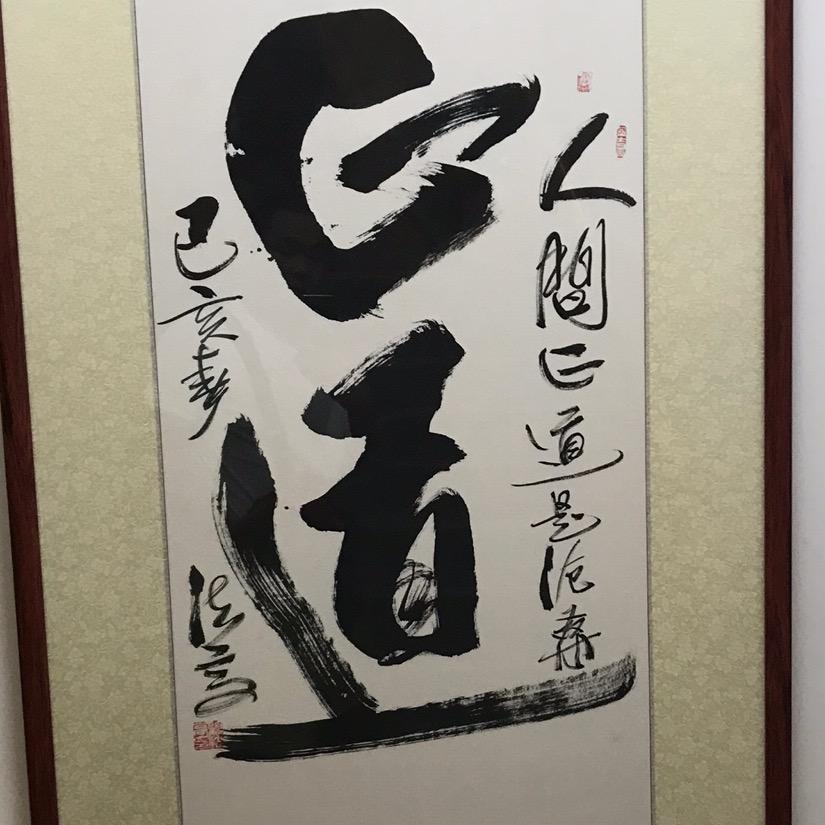 人間正道是滄桑
正道
己亥春